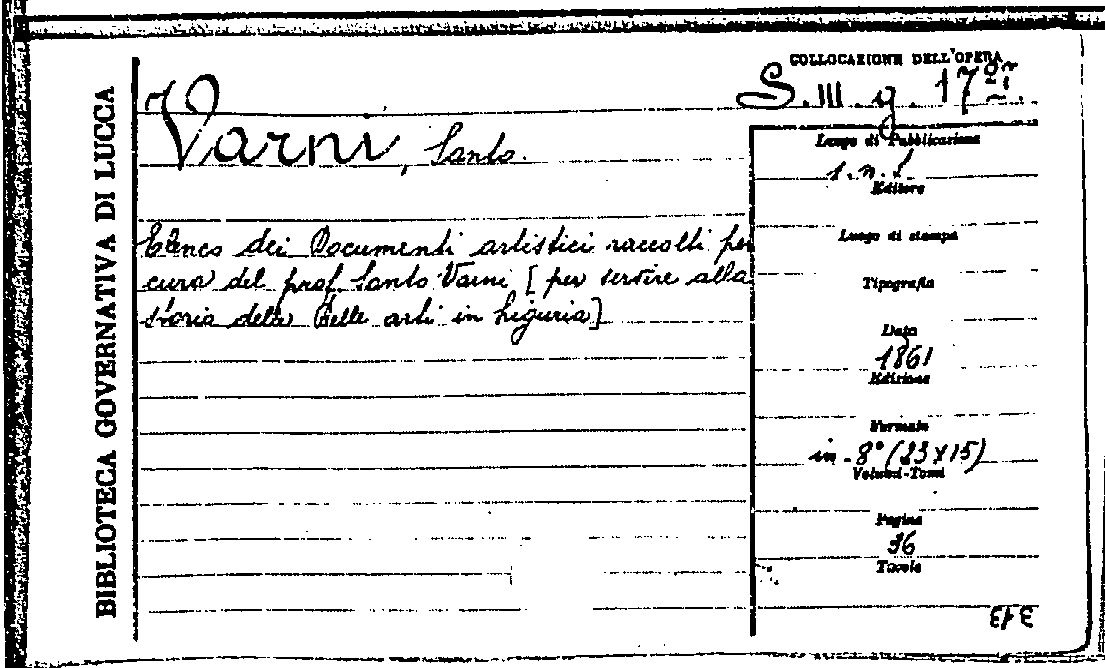 BIBLIOTECA GOVERNATIVA DI LUCCA
COLLOCAZIONE DELL'OPERA
S. III. g. 17
Varni, Santo.
Elenco dei Documenti artistici raccolti per
cura del prof. Santo Varni [per servire alla
storia della Belle arti in Liguria]
Luogo di Pubblicazione
s.n.l
Editore
Luogo di stampa
Tipografia
Data
1861
Edizione
Formato
in-8° (23x15)
Volumi-Tomi
Pagine
Tavole